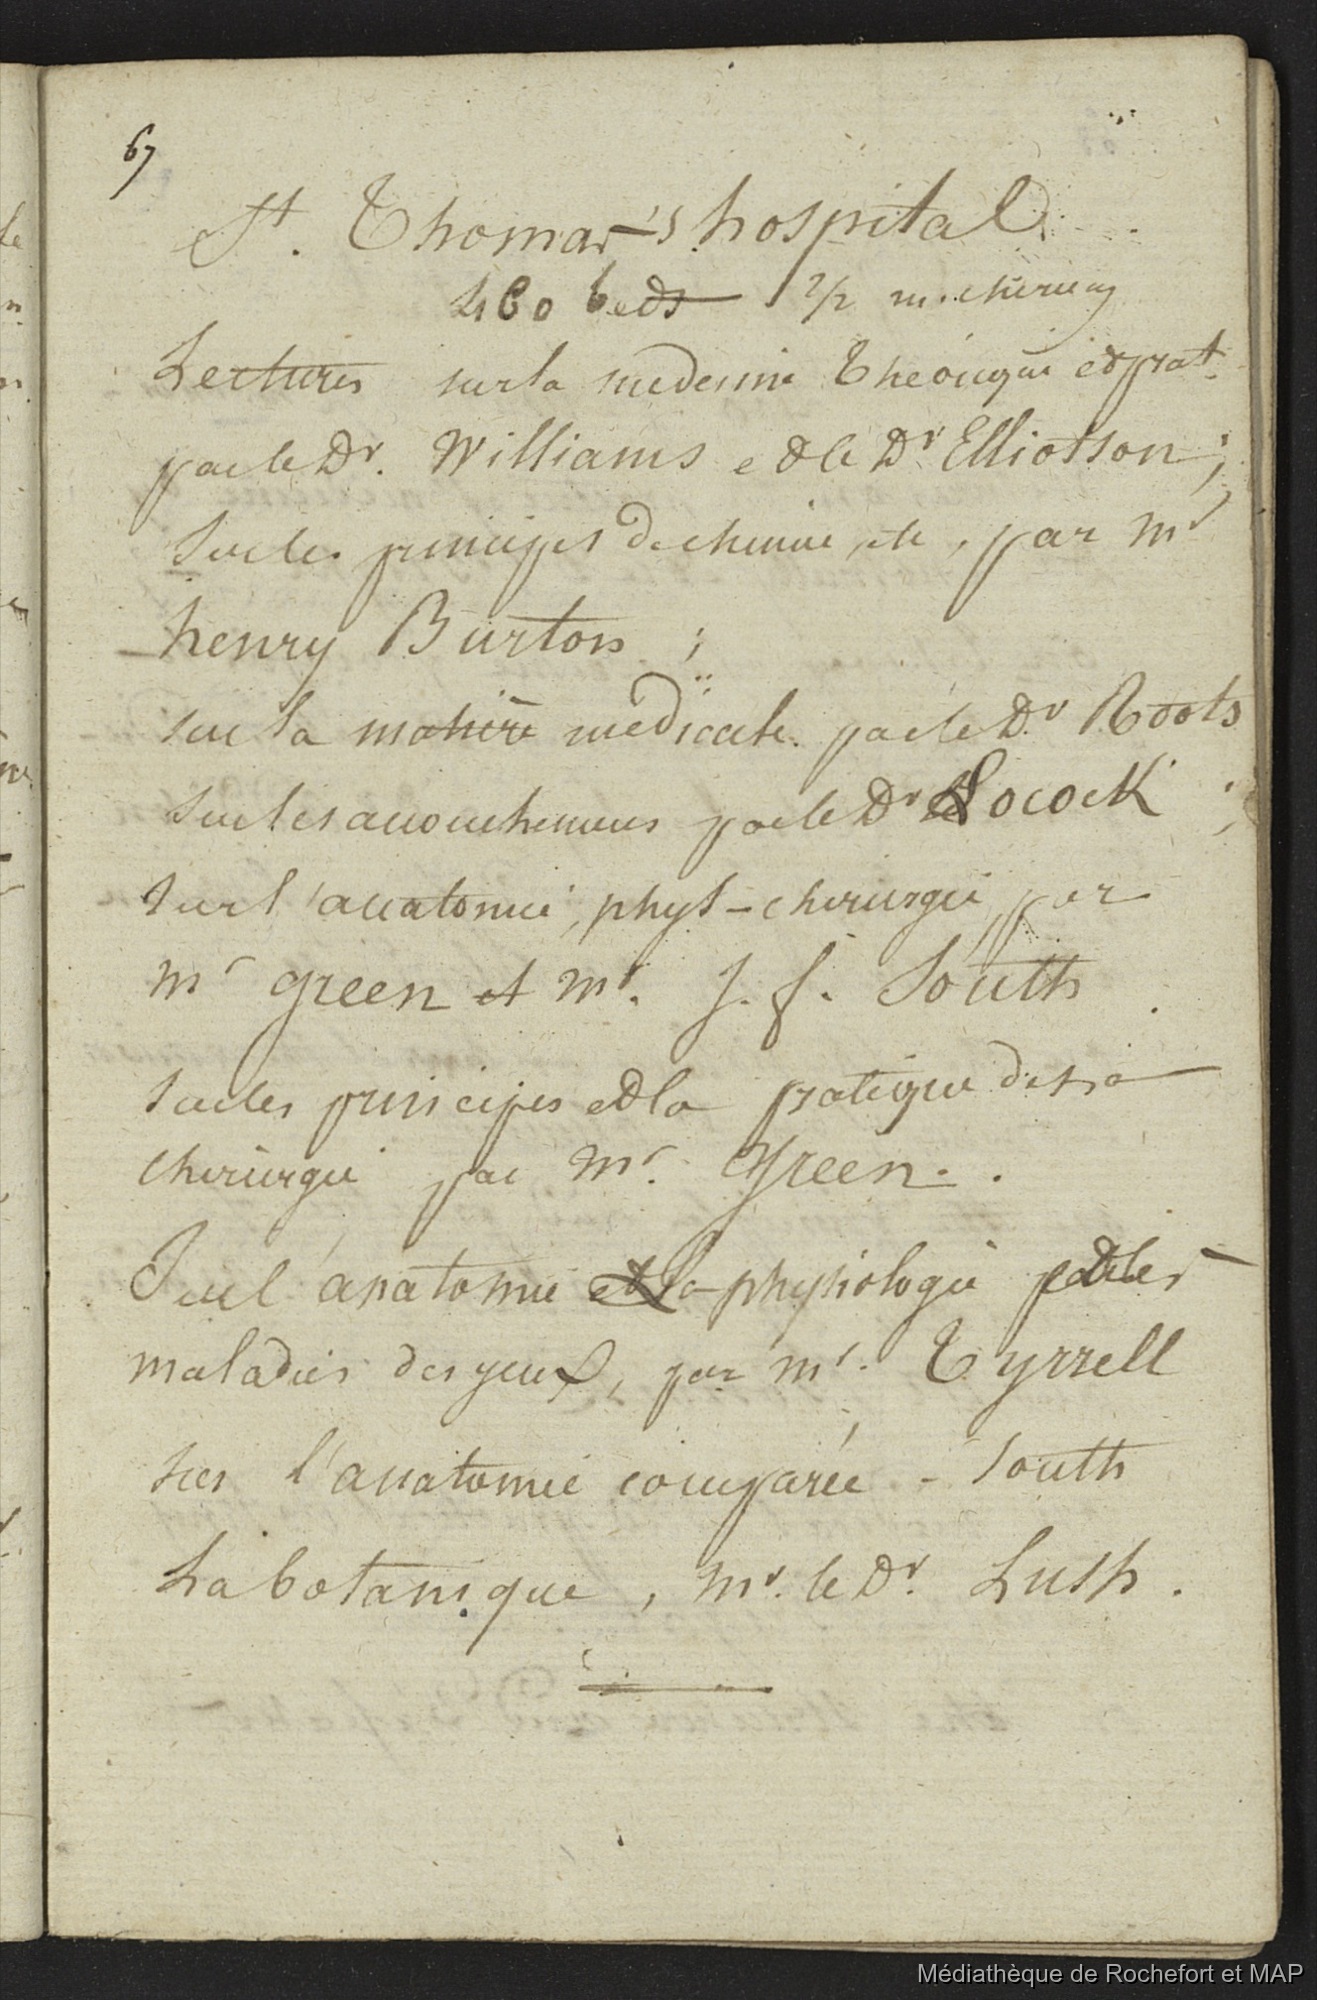 67
St. Thomas's hospital
460 beds 1/2 m. chirurg
Lectures sur la medecine theorique et prat.
par le Dr. Williams et le Dr Elliotson ;
sur les principes de chimie, etc, par mr
henry Burton ;
sur la matière medicale par le Dr Roots
sur les accouchemens par le Dr Locock ;
sur l'anatomie, phys - chirurgie, par
mr green et mr. J. f. South .
sur les principes et la pratique de la
chirurgie par mr. Green .
Sur l'anatomie et la physiologie et les
maladies des yeux, par mr. Tyrrell
sur l'anatomie comparée - South
La botanique, mr. le Dr. Lush .
Médiathèque de Rochefort et MAP